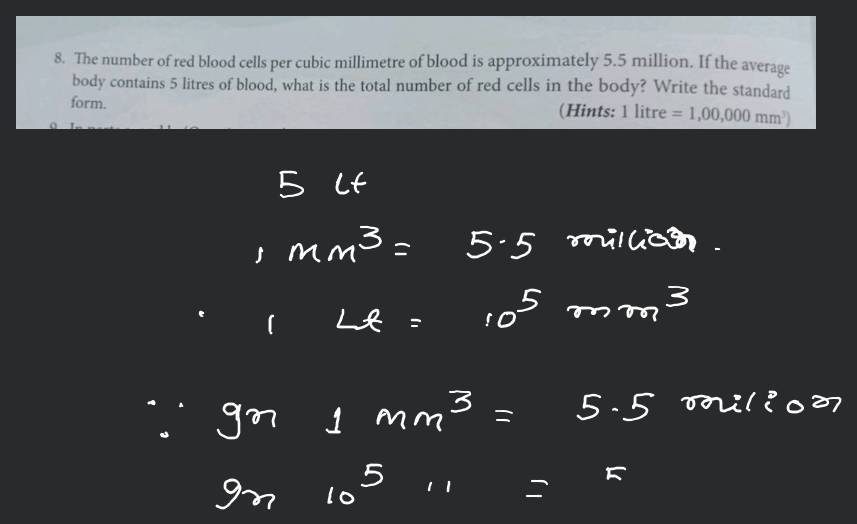 8. The number of red blood cells per cubic millimetre of blood is approximately 5.5 million. If the average
body contains 5 litres of blood, what is the total number of red cells in the body? Write the standard
form.
(Hints: 1 litre = 1,00,000 mm³)
5 Lt
1 mm³ = 5.5 million.
1 Lt = 10⁵ mm³
∵ In 1 mm³ = 5.5 million
In 10⁵ " = 5